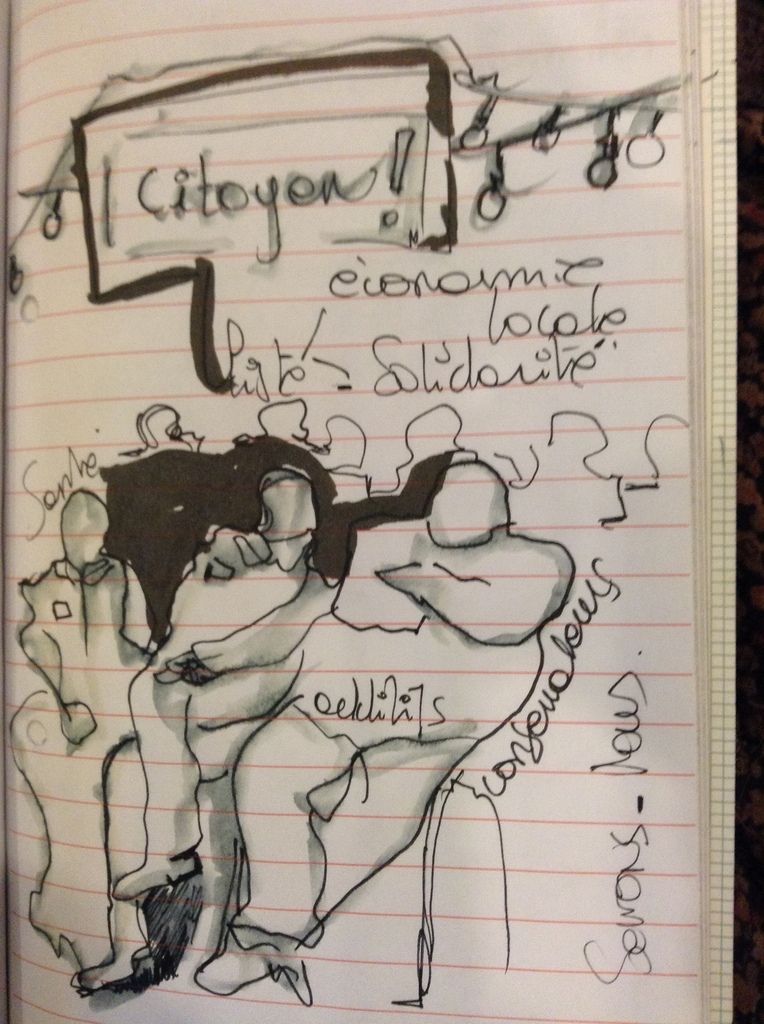 Citoyen !
économie
locale
Solidarité
Santé
additifs
conservateurs
Serrons-nous.